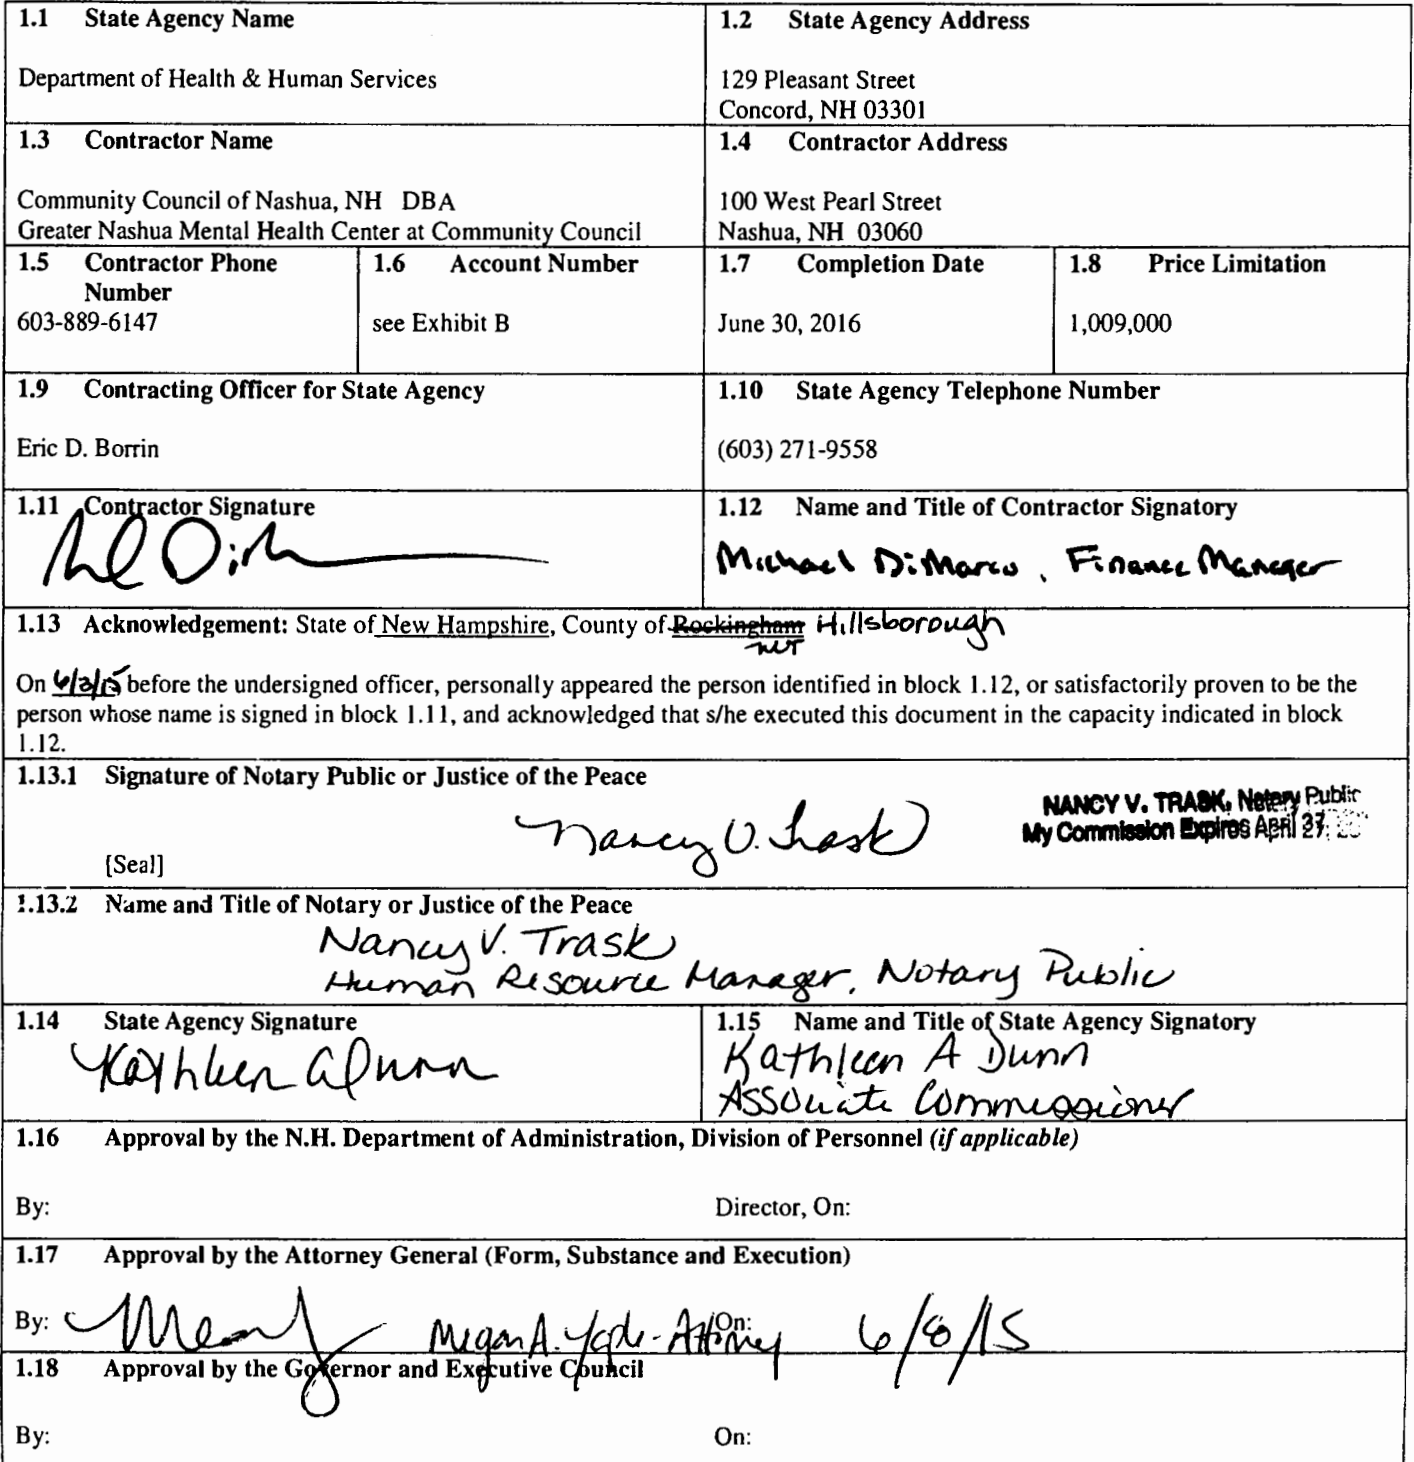 1.1 State Agency Name
Department of Health & Human Services
1.2 State Agency Address
129 Pleasant Street
Concord, NH 03301
1.3 Contractor Name
Community Council of Nashua, NH DBA
Greater Nashua Mental Health Center at Community Council
1.4 Contractor Address
100 West Pearl Street
Nashua, NH 03060
1.5 Contractor Phone
Number
603-889-6147
1.6 Account Number
see Exhibit B
1.7 Completion Date
June 30, 2016
1.8 Price Limitation
1,009,000
1.9 Contracting Officer for State Agency
Eric D. Borrin
1.10 State Agency Telephone Number
(603) 271-9558
1.11 Contractor Signature
1.12 Name and Title of Contractor Signatory
Michael DiMarco, Finance Manager
1.13 Acknowledgement: State of New Hampshire, County of Rockingham Hillsborough
NVT
On 6/3/15 before the undersigned officer, personally appeared the person identified in block 1.12, or satisfactorily proven to be the
person whose name is signed in block 1.11, and acknowledged that s/he executed this document in the capacity indicated in block
1.12.
1.13.1 Signature of Notary Public or Justice of the Peace
Nancy V. Trask
NANCY V. TRASK, Notary Public
My Commission Expires April 27,
[Seal]
1.13.2 Name and Title of Notary or Justice of the Peace
Nancy V. Trask
Human Resource Manager, Notary Public
1.14 State Agency Signature
Kathleen A Dunn
1.15 Name and Title of State Agency Signatory
Kathleen A Dunn
Associate Commissioner
1.16 Approval by the N.H. Department of Administration, Division of Personnel (if applicable)
By: Director, On:
1.17 Approval by the Attorney General (Form, Substance and Execution)
By: Megan A. - Attorney On: 6/8/15
1.18 Approval by the Governor and Executive Council
By: On: